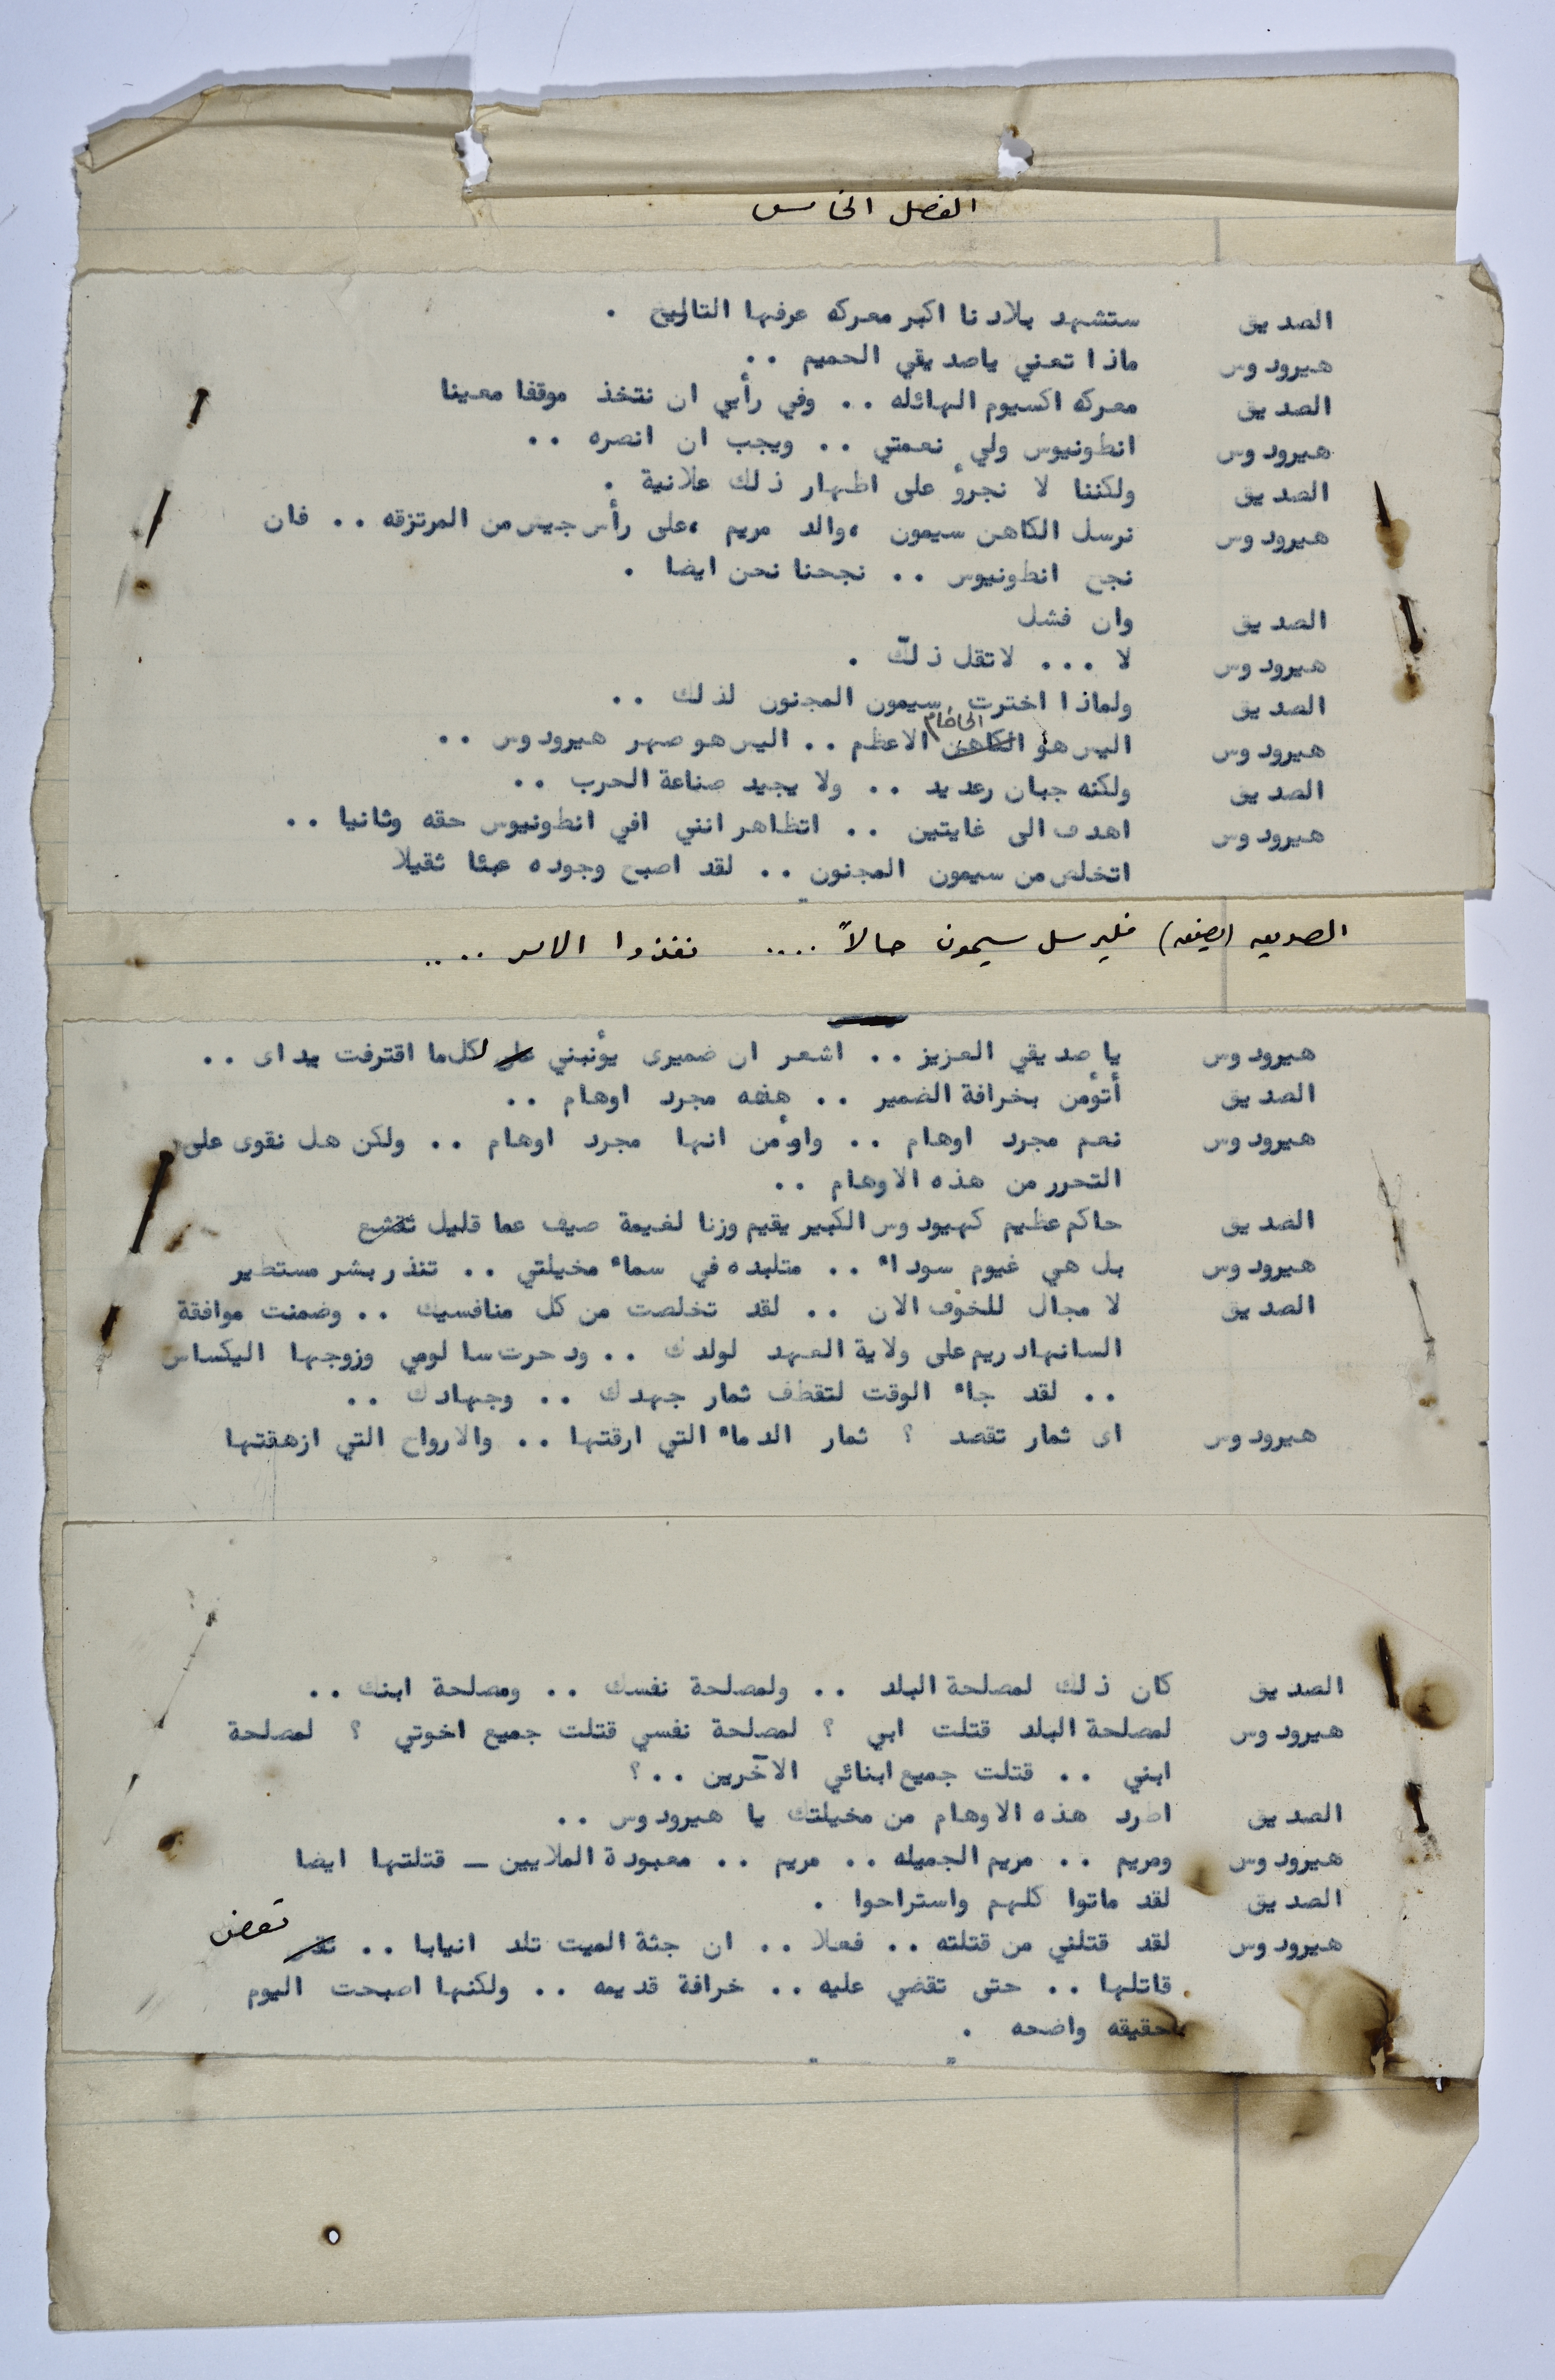 الفصل الخامس
الصديق ستشهد بلادنا اكبر معركه عرفها التاريخ .
هيرودوس ماذا تعني ياصديقي الحميم ..
الصديق معركه اكسيوم الهائله .. وفي رأيي ان نتخذ موقفا معينا
هيرودوس انطونيوس ولي نعمتي .. ويجب ان انصره ..
الصديق ولكننا لا نجرؤ على اظهار ذلك علانية .
هيرودوس نرسل الكاهن سيمون ،والد مريم ،على رأس جيش من المرتزقه .. فان
نجح انطونيوس .. نجحنا نحن ايضا .
الصديق وان فشل
هيرودوس لا ... لاتقل ذلك .
الصديق ولماذا اخترت سيمون المجنون لذلك ..
الحاخام
هيرودوس اليس هو الكاهن الاعظم .. اليس هو صهر هيرودوس ..
الصديق ولكنه جبان رعديد .. ولا يجيد صناعة الحرب ..
هيرودوس اهدف الى غايتين .. اتظاهر انني افي انطونيوس حقه وثانيا ..
اتخلص من سيمون المجنون .. لقد اصبح وجوده عبئا ثقيلا
الصديق (يصفق) فليرسل سيمون حالاً .... نفذوا الامر ....
هيرودوس يا صديقي العزيز .. اشعر ان ضميرى يؤنبني على لكل ما اقترفت يداى ..
الصديق أتؤمن بخرافة الضمير .. هذه مجرد اوهام ..
هيرودوس نعم مجرد اوهام .. واؤمن انها مجرد اوهام .. ولكن هل نقوى على
التحرر من هذه الاوهام ..
الصديق حاكم عظيم كهيودوس الكبير يقيم وزنا لغيمة صيف عما قليل تقشع
هيرودوس بل هي غيوم سوداء .. متلبده في سماء مخيلتي .. تنذر بشر مستطير
الصديق لا مجال للخوف الان .. لقد تخلصت من كل منافسيك .. وضمنت موافقة
السانهادريم على ولاية العهد لولدك .. ودحرت سالومي وزوجها اليكساس
.. لقد جاء الوقت لتقطف ثمار جهدك .. وجهادك ..
هيرودوس اى ثمار تقصد ؟ ثمار الدماء التي ارقتها .. والارواح التي ازهقتها
الصديق كان ذلك لمصلحة البلد .. ولمصلحة نفسك .. ومصلحة ابنك ..
هيرودوس لمصلحة البلد قتلت ابي ؟ لمصلحة نفسي قتلت جميع اخوتي ؟ لمصلحة
ابني .. قتلت جميع ابنائي الآخرين ..؟
الصديق اطرد هذه الاوهام من مخيلتك يا هيرودوس ..
هيرودوس ومريم .. مريم الجميله .. مريم .. معبودة الملايين — قتلتها ايضا
الصديق لقد ماتوا كلهم واستراحوا .
هيرودوس لقد قتلني من قتلته .. فعلا .. ان جثة الميت تلد انيابا .. تعض
قاتلها .. حتى تقضي عليه .. خرافة قديمه .. ولكنها اصبحت اليوم
حقيقه واضحه .